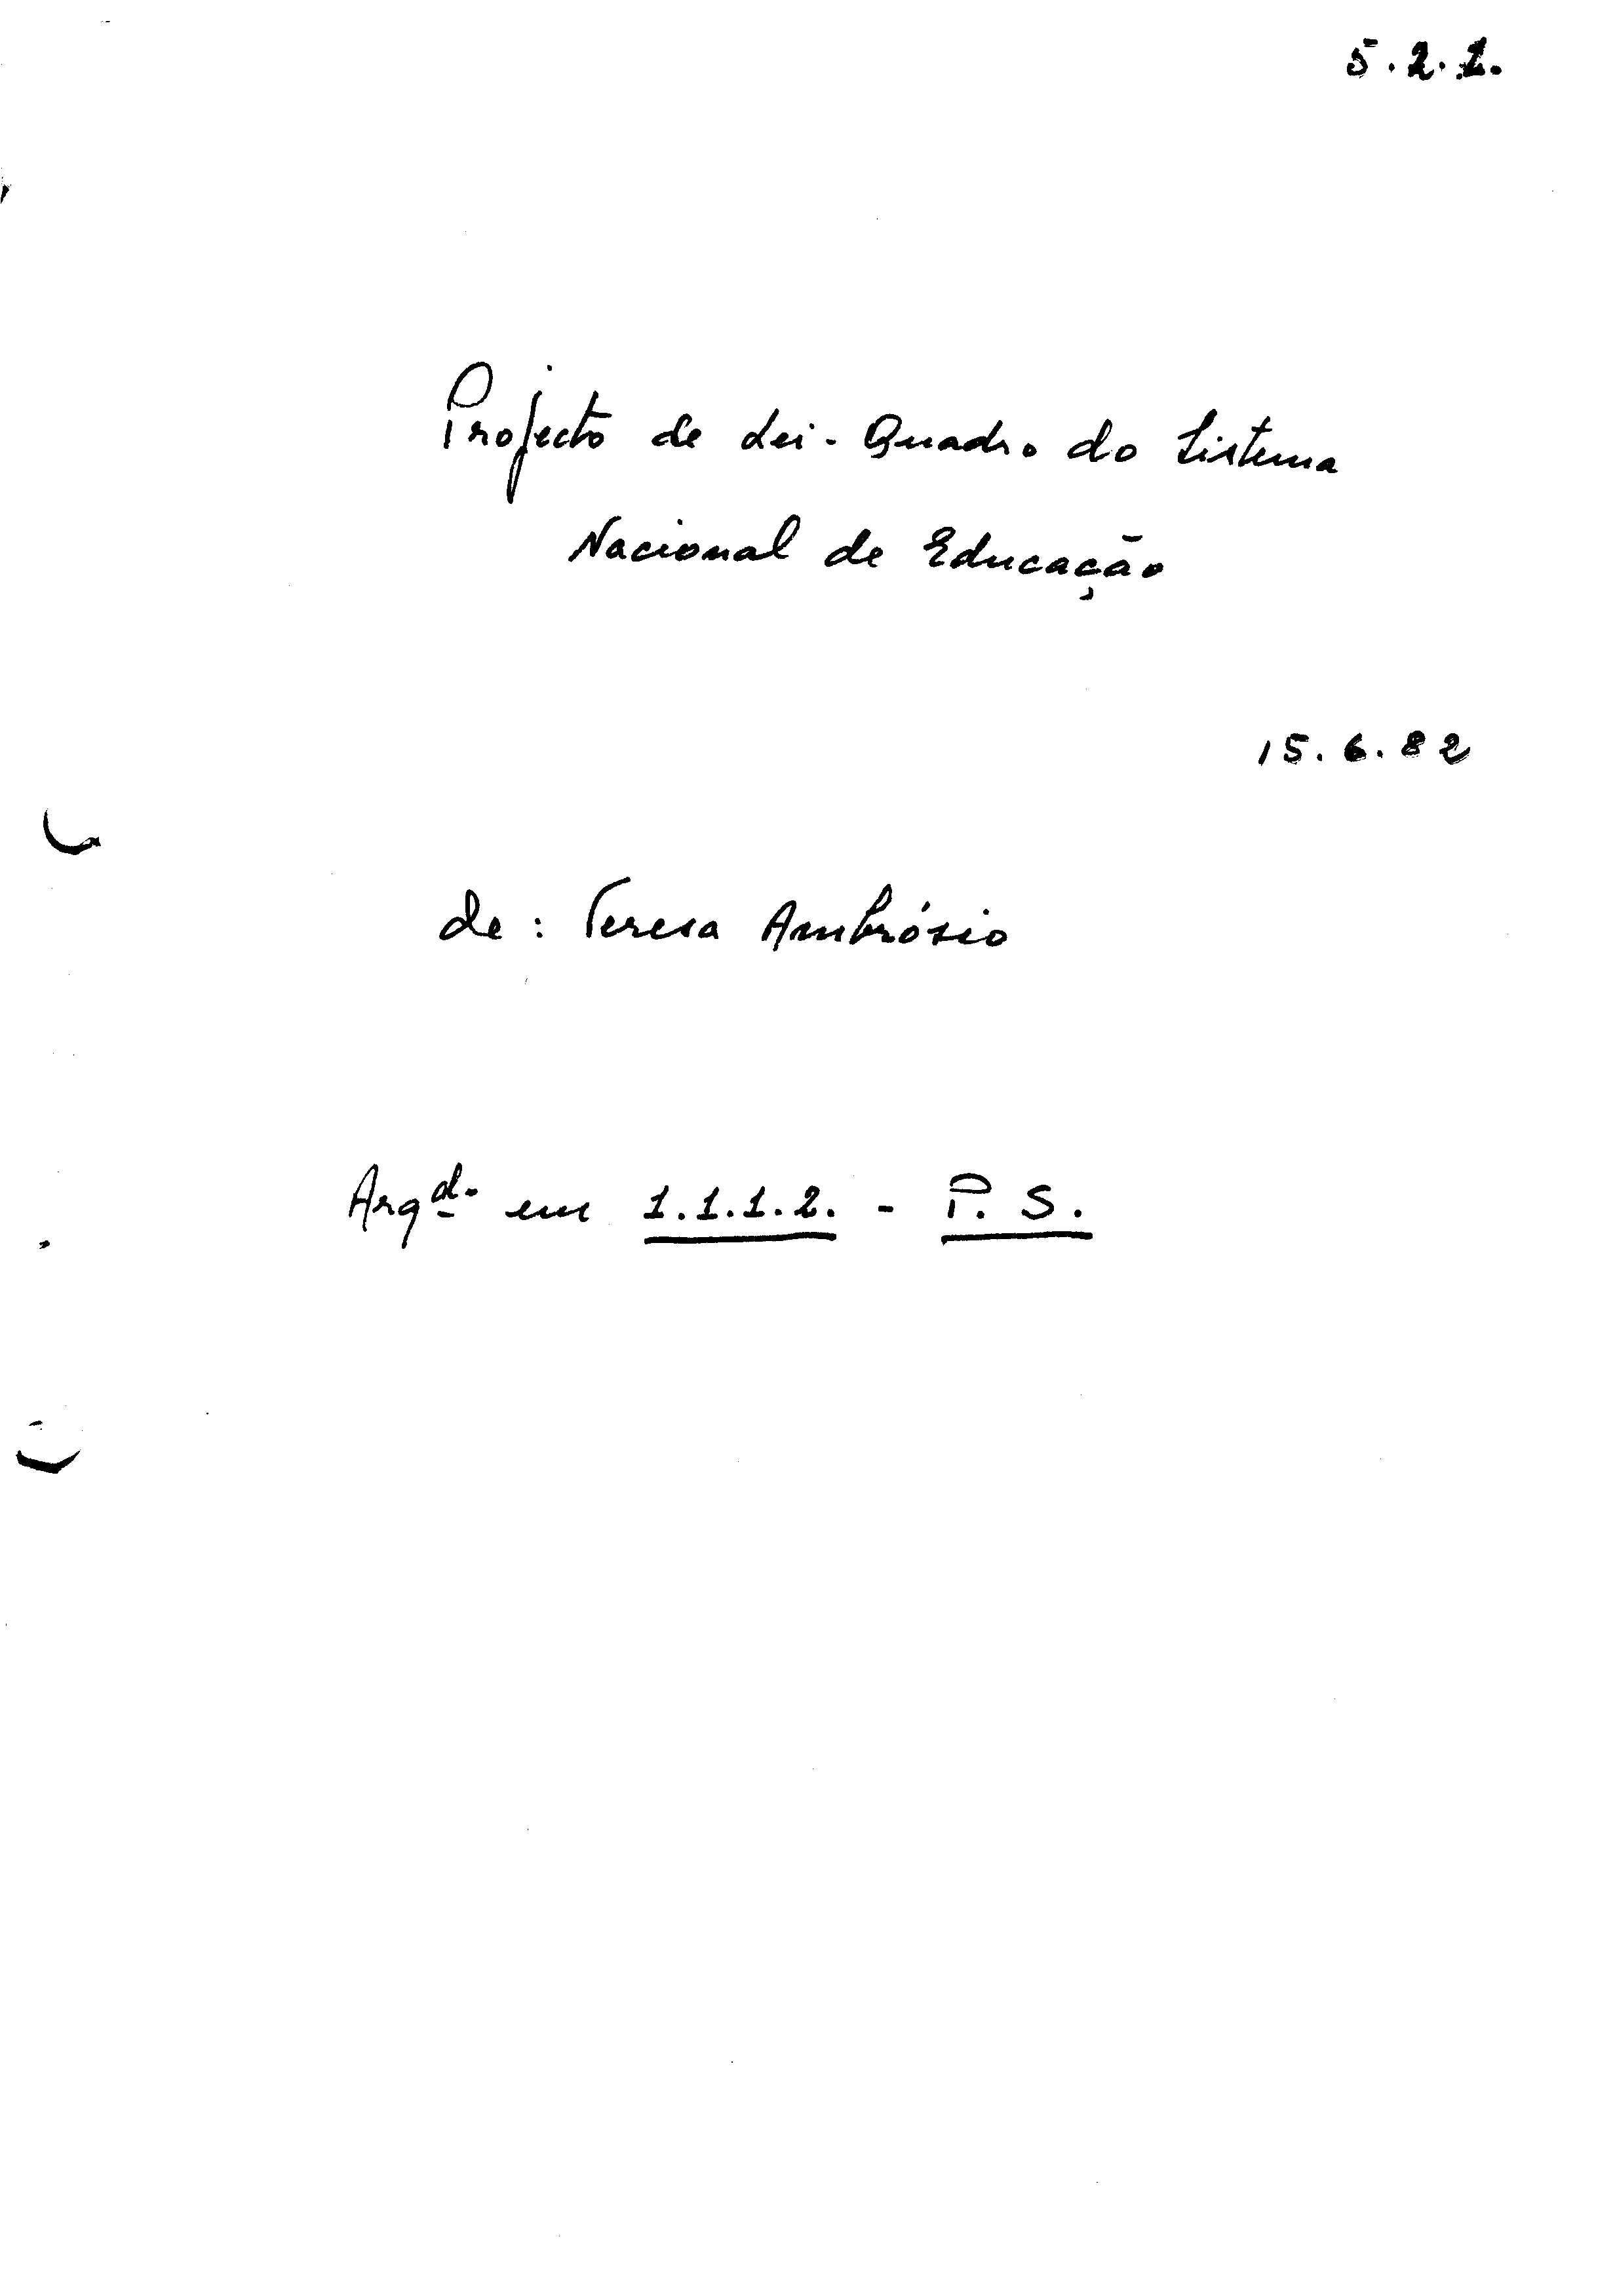 5.2.1.
Projecto de Lei-Quadro do Sistema
Nacional de Educação
15.6.82
de: Teresa Ambrósio
Arqdo em 1.1.1.2. - P. S.